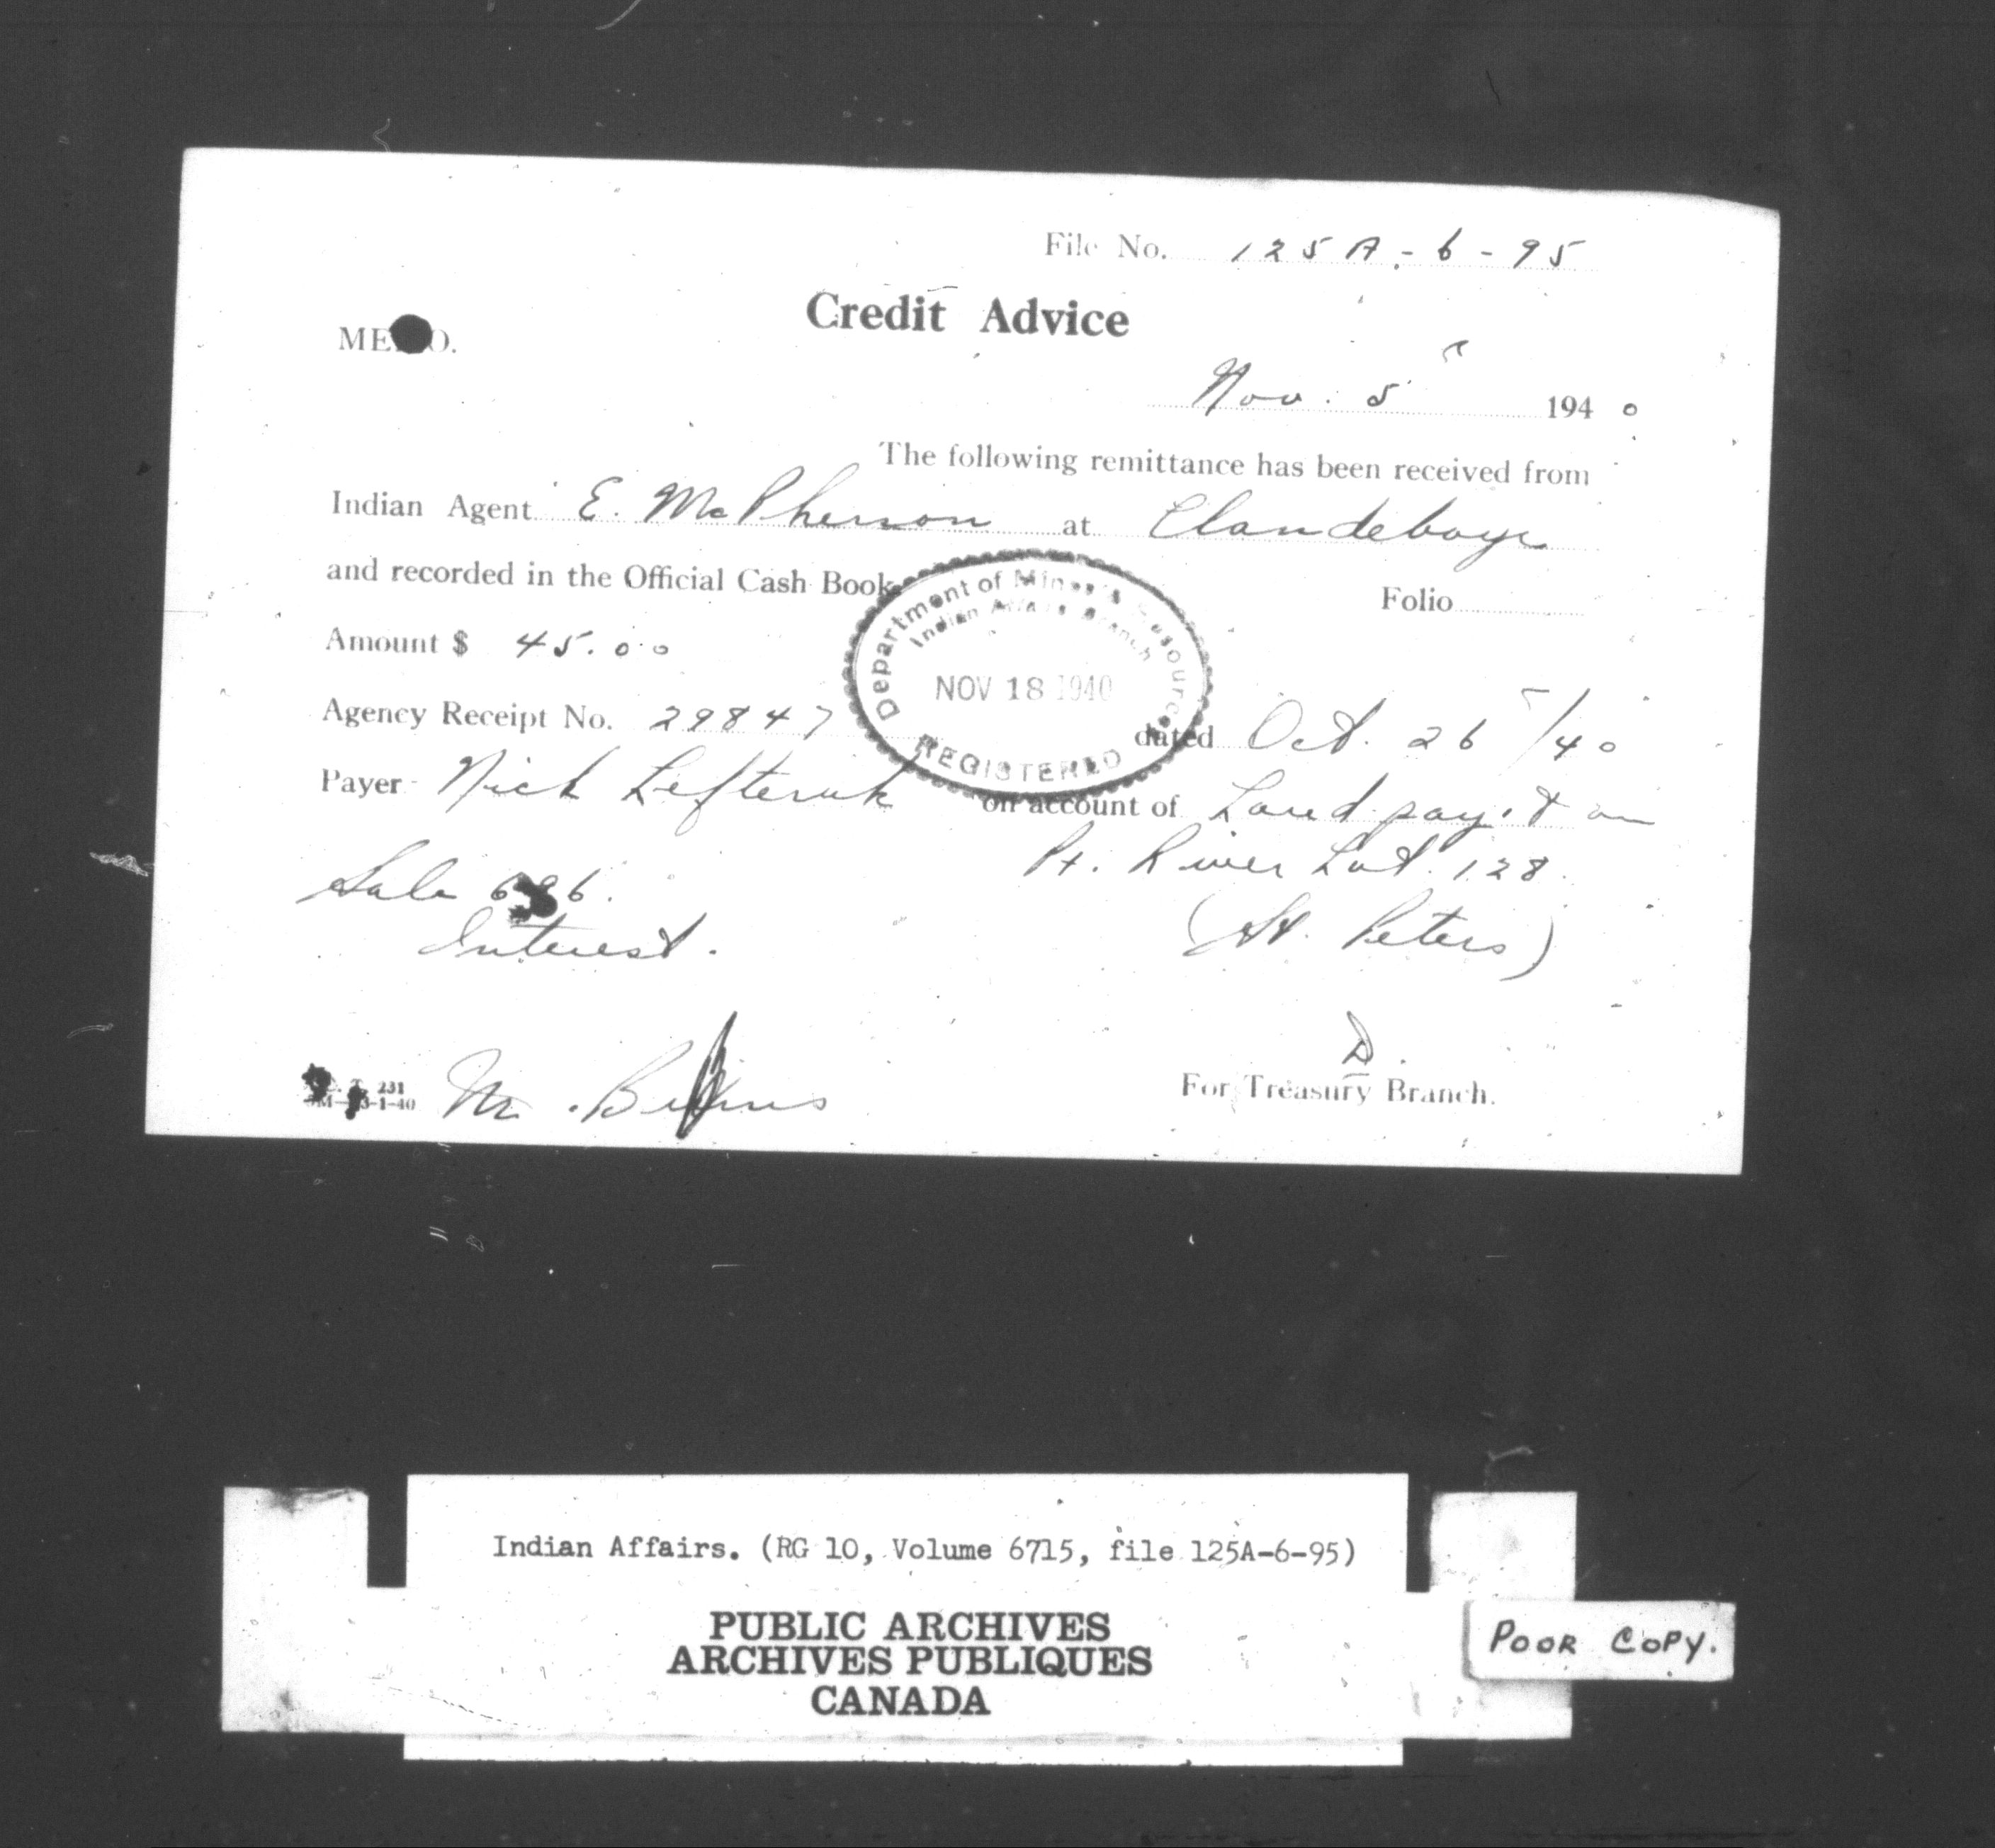 File No. 125A-6-95
Credit Advice
MEMO.
Nov. 5 1940
The following remittance has been received from
Indian Agent E. McPherson at Clandeboye
and recorded in the Official Cash Book Folio
Department of Mines & Resources
Indian Affairs Branch
NOV 18 1940
REGISTERED
Amount $ 45.00
Agency Receipt No. 29847 dated Oct. 26/40
Payer - Nick Lefteruk on account of Land pay't on
Sale 696. Pt. River Lot 128.
Interest. (St. Peters)
231
3-1-40
For Treasury Branch.
Indian Affairs. (RG 10, Volume 6715, file 125A-6-95)
PUBLIC ARCHIVES
ARCHIVES PUBLIQUES
CANADA
POOR COPY.